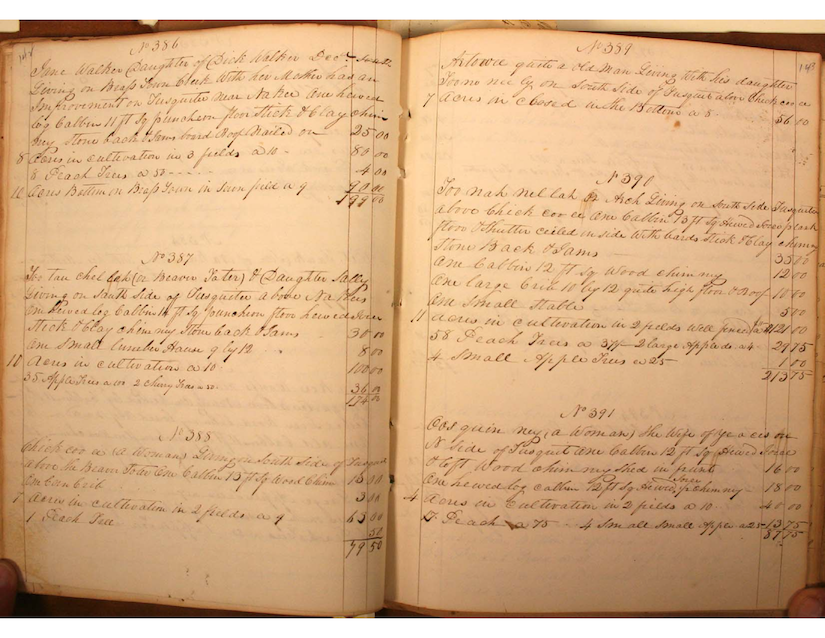 No 386
Jane Walker Daughter of Dick Walker Decd
Living on Brass Town Creek With her Mother has an
Improvement on Tusquitee near Naker One hewed
log Cabbin 11 ft Sq puncheon floor Stick & Clay chim
ny Stone back & Jams board Roof Nailed on 25 00
8 Acres in cultivation in 3 fields a 10 - 80 00
8 Peach Trees a 50 - - - - - 4 00
10 Acres Bottom on Brass Town in Sown field a 9 90 00
199 00
No 387
Too tau chel lah (or Beaver Toter) & Daughter Sally
Living on South Side of Tusquitee above
One hewed log Cabbin 12 ft Sq Puncheon floor hewed
Stick & Clay chimny Stone back & Jams 30 00
One Small lumber House 9 by 12 8 00
10 Acres in cultivation a 10 100 00
35 Apple Trees a 100 2 Cherry Trees a 50 36 00
174 00
No 388
Chick coo e (a Woman) Living on South Side of Tusquit
above the beaver Toter One Cabbin 13 ft Sq Wood Chim 15 00
One Corn Crib 3 00
7 Acres in cultivation in 2 fields a 9 63 00
1 Peach Tree 50
79 50
No 389
quite a old Man Living With his daughter
on South Side of Tusquit above Chick coo e
7 Acres in closed in the Bottom a 8 56 00
143
No 390
Too nah nel lah or Arch Living on South Side Tusquitee
above Chick coo ee One Cabbin 13 ft Sq Hewed plank
floor & Shutter cieled in side With bords Stick & Clay chimny
Stone Back & Jams 35 00
One Cabbin 12 ft Sq Wood chimny 12 00
One large Crib 10 by 12 quite high floor & Roof 10 00
One Small Stable 5 00
11 Acres in cultivation in 2 fields Well fenced
58 Peach Trees a 37½ 2 large Apple do a 4 29 75
4 Small Apple Trees a 25 1 00
213 75
No 391
Oos quin ney (a Woman) the Wife of
N Side of Tusquit One Cabbin 12 ft Sq Hewed
& loft Wood chimny Shed in front 16 00
One hewed log cabbin 12 ft Sq Hewed floor chimny 18 00
4 Acres in cultivation in 2 fields a 10 40 00
Peach a 75 4 Small Small Apple a 25 13 75
87 75